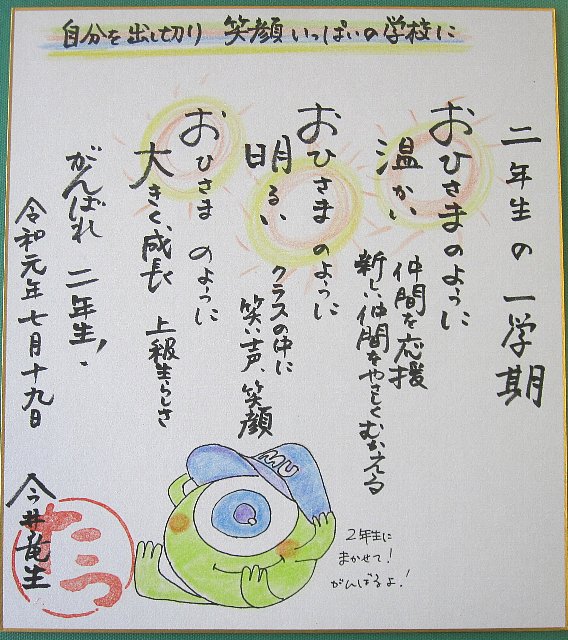 自分を出し切り 笑顔いっぱいの学校に
二年生の一学期
おひさまのように
温かい 仲間を応援
新しい仲間をやさしくむかえる
おひさまのように
明るい クラスの中に
笑い声、笑顔
おひさまのように
大きく、成長 上級生らしさ
がんばれ 二年生!
令和元年七月十九日
今井竜生
たつ
MU
2年生に
まかせて!
がんばるよ!